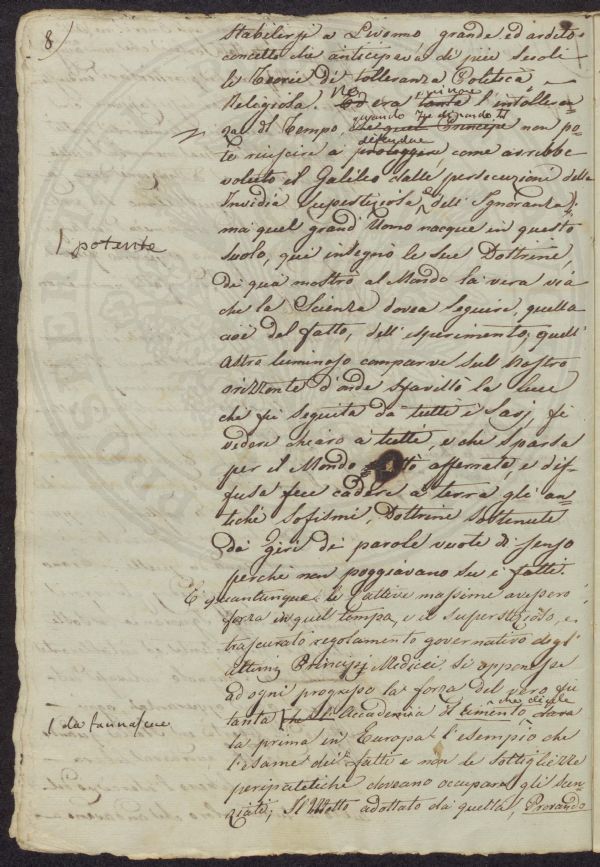 8
stabilirsi a Livorno grande ed ardito
concetto che anticipava di più secoli
le Teorie di tolleranza Politica e
Religiosa. Ed era tanta l'intolleran=
No,
za del Tempo, che quel Principe non po=
quando
te riuscire a proteggere, come avrebbe
difendere
voluto il Galileo dalle persecuzioni della
Invidia superstiziosa e dell'Ignoranza;
ma quel grand'Uomo nacque in questo
/ potente
suolo, qui insegnò le sue Dottrine,
di qua mostrò al Mondo la vera via
che la Scienza dovea seguire, quella
cioè del fatto, dell'esperimento, quell'
Astro luminoso comparve sul nostro
orizzonte d'onde sfavillò la luce
che fu seguita da tutti i Savj, fe
vedere chiaro a tutti, e che sparsa
per il Mondo affermata, e dif=
fusa fece cadere a terra gli an=
tichi sofismi, Dottrine sostenute
da giri di parole vuote di senso
perchè non poggiavano su i fatti.
E quantunque le cattive massime avessero
forza in quel tempo, e il superstizioso, e
trascurato regolamento governativo degl'
ultimi Principi Medicei si opponesse
ad ogni progresso la forza del vero fu
tanta che l'Accademia del Cimento dava
che diede
/ da far nascere
la prima in Europa l'esempio che
l'esame dei fatti e non le sottigliezze
peripatetiche doveano occupare gli Scien=
ziati, Il Motto adottato da quella, Provando